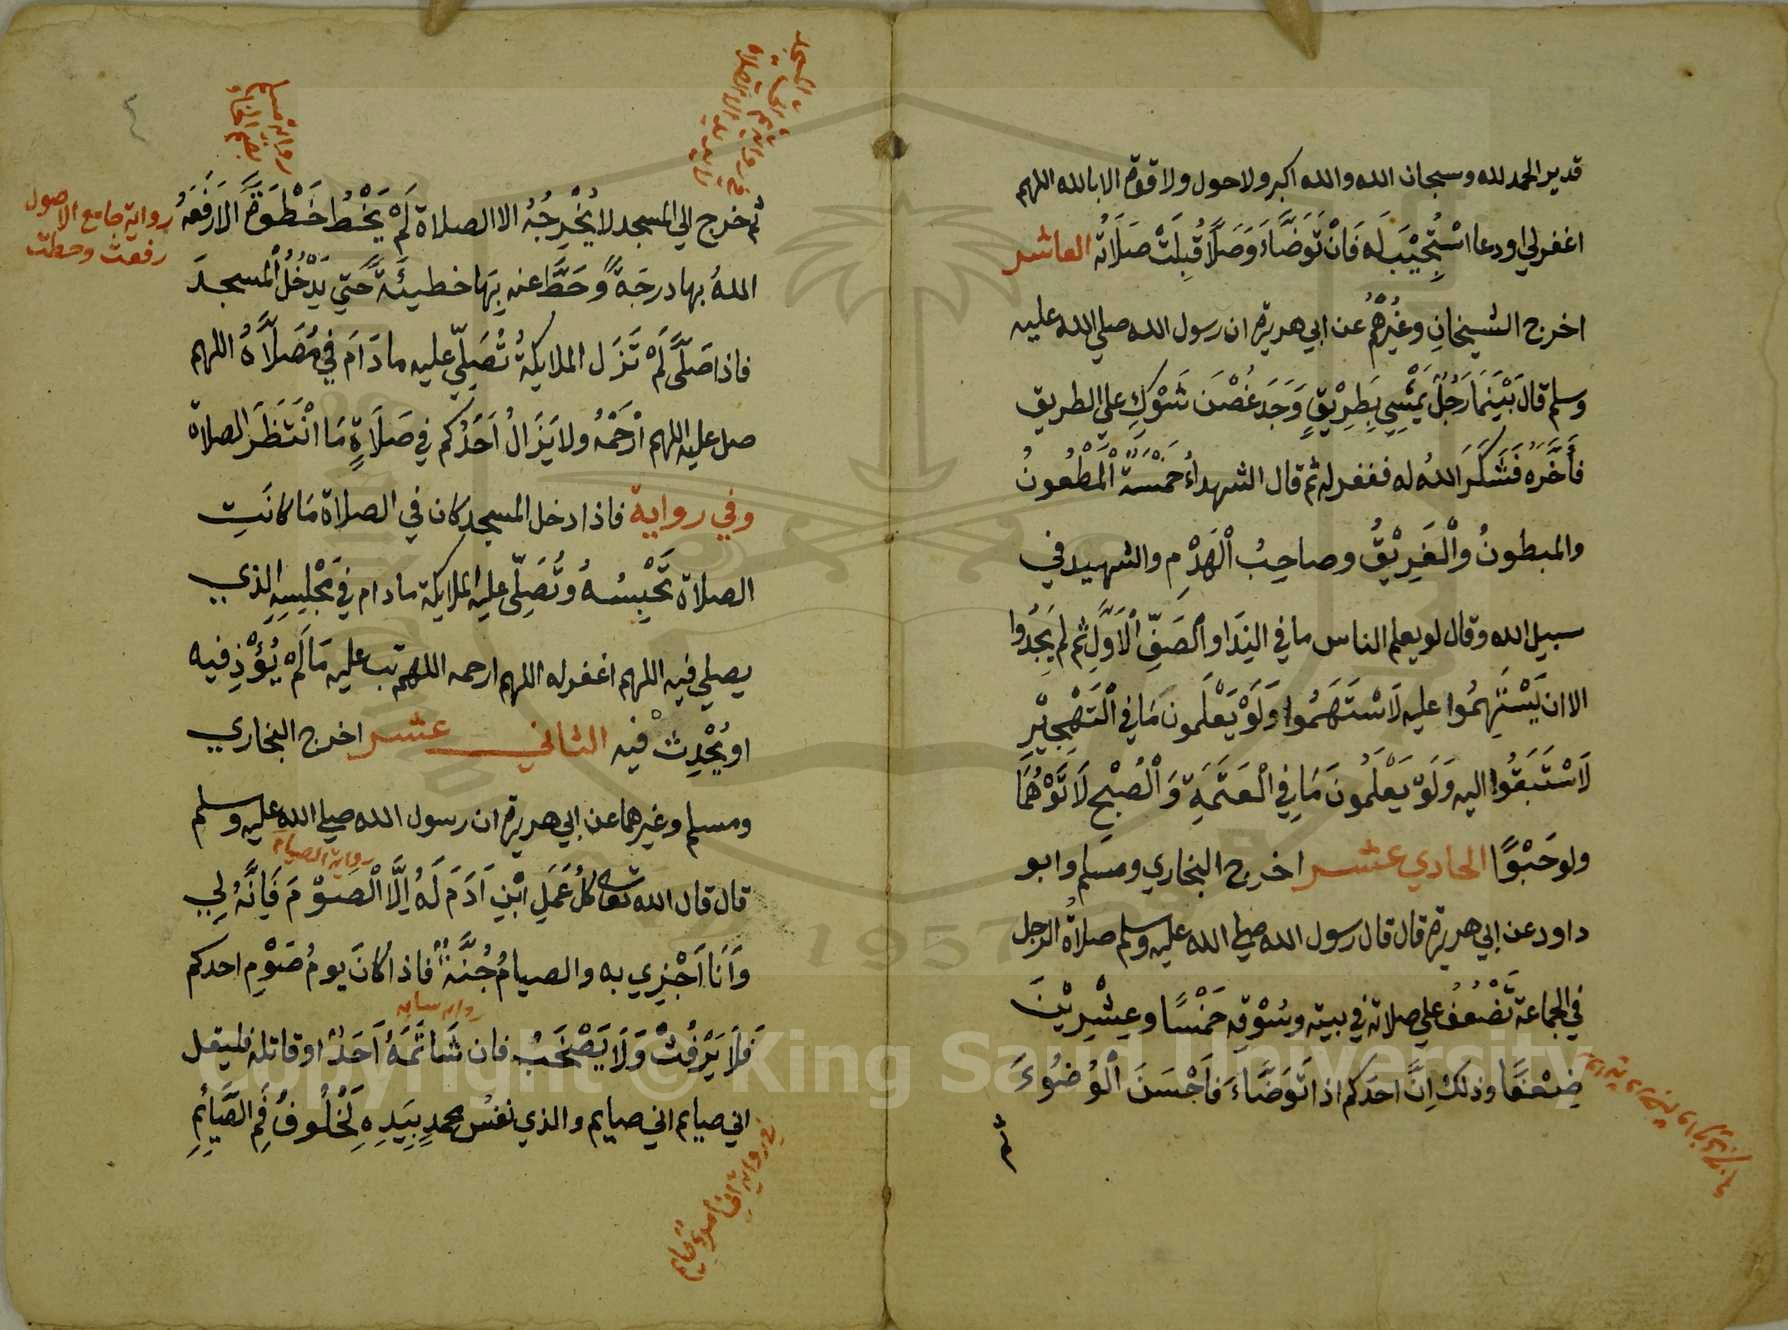 قدير الحمد لله وسبحان الله والله اكبر ولا حول ولا قوة الا بالله اللهم
اغفر لي او دعا اسْتُجِيْبَ لَه فَاِنْ تَوَضَّاءَ وَصَلَّا قُبِلَتْ صَلَاتُه العاشر
اخرج الشيخانِ وغيْرُهُم عن ابي هريرة ان رسول الله صلي الله عليه
وسلم قال بَيْنَمَا رَجُلٌ يَمْشِي بِطِرِيْقٍ وَجَدَ غُصْنَ شَوْكٍ علي الطريق
فأَخَّرَهُ فَشَكَرَ اللهُ له فغفر له ثم قال الشهداءُ خَمْسَةٌ الْمَطْعُونُ
والمبطونُ والْغَرِيْقُ وصاحِبُ الْهَدْمِ والشهيد في
سبيل الله وقال لو يعلم الناس ما في النِدَا والصَفِّ الْاَوَّلِ ثم لم يَجِدُوا
الا ان يَسْتَهِمُوا عليه لَاسْتَهَمُوا وَلَوْ يَعْلَمون مَا في التَهْجِيْرِ
لَاسْتَبَقُوا اليه وَلَوْ يَعْلَمُونَ مَا في الْعَتَمَةِ وَالْصُبْحِ لَاَتَوْهُمَا
ولو حَبْوًا الحادي عشر اخرج البخاري ومسلم وابو
داود عن ابي هريرة قال قال رسول الله صلي الله عليه وسلم صلاةُ الرجل
في الجماعة تَضْعُفُ علي صلاته في بيته وسُوْقِه خَمْسًا وعِشْرِيْنَ
ضِعْفًا وذلك اِنَّ احدكم اذا تَوَضَّاءَ فَاَحْسَنَ الْوُضُوءَ
ثم
٤
رواية جامع الاصول
رفعت وحطت
ثم خرج الي المسجد لا يُخْرِجُهُ الا الصلاة لَمْ يَخْطُ خَطْوَةً الا رَفَعَهُ
اللهُ بها درجَةً وَحَطَّ عنه بِهَا خطيئةً حَتي يَدْخُلُ المسجدَ
فاذا صَلَّى لَمْ تَزَل الملايكةُ تُصَلّي عليه ما دَامَ في مُصَلَّاهُ اللهم
صل عليه اللهم ارْحَمْهُ ولا يَزَالُ اَحَدُكم في صَلَاةٍ مَا انْتَظَرَ الصلاة
وفي رواية فاذا دخل المسجد كان في الصلاة مَا كانَتِ
الصلاة تَحْبِسُهُ وتُصَلّي عليه الملايكة ما دام في مَجْلِسِهِ الذي
يصلي فيه اللهم اغفر له اللهم ارحمه اللهم تب عليه مَا لَمْ يُؤْذِ فيه
او يُحْدِثْ فيه الثاني عشر اخرج البخاري
ومسلم وغيرهما عن ابي هريرة ان رسول الله صلي الله عليه وسلم
رواية الصيام
قال قال الله تعالى كلُ عَمَلِ ابْنِ اَدَمَ لَهُ اِلَّا الْصَوْمَ فَاِنَّهُ لِي
وَاَنَا اَجْزِي به والصيامُ جُنَّةٌ فاذا كانَ يومُ صَوْمِ احدكم
روايه سابه
فَلَا يَرْفُثْ وَلَا يَصْخَبْ فان شَاتَمَهُ اَحَدٌ او قاتله فليقل
اني صايم اني صايم والذي نفسُ محمدٍ بِيَدِهِ لَخُلُوفُ فَمِ الصَّايِمِ